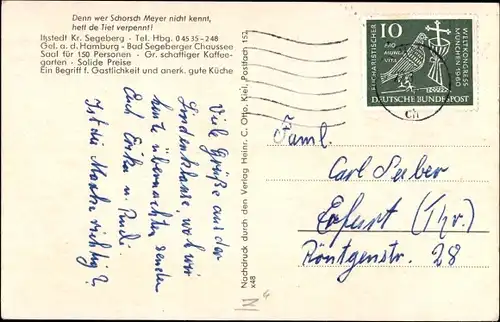 Denn wer Schorsch Meyer nicht kennt,
hett de Tiet verpennt!
Itzstedt Kr. Segeberg - Tel. Hbg. 0 45 35 - 248
Gel. a. d. Hamburg - Bad Segeberger Chaussee
Saal für 150 Personen · Gr. schattiger Kaffee-
garten · Solide Preise
Ein Begriff f. Gastlichkeit und anerk. gute Küche
Viele Grüße aus der
Lindenklause, wo wir
heute übernachten
Eure Erika u. Rudi.
Ist die Marke richtig?
Nachdruck durch den Verlag Heinr. C. Otto, Kiel, Postfach 152
x48
EUCHARISTISCHER
WELTKONGRESS
MÜNCHEN 1960
10
PRO
MUNDI
VITA
DEUTSCHE BUNDESPOST
ch
Faml.
Carl Seiber
Erfurt (Thr.)
Röntgenstr. 28